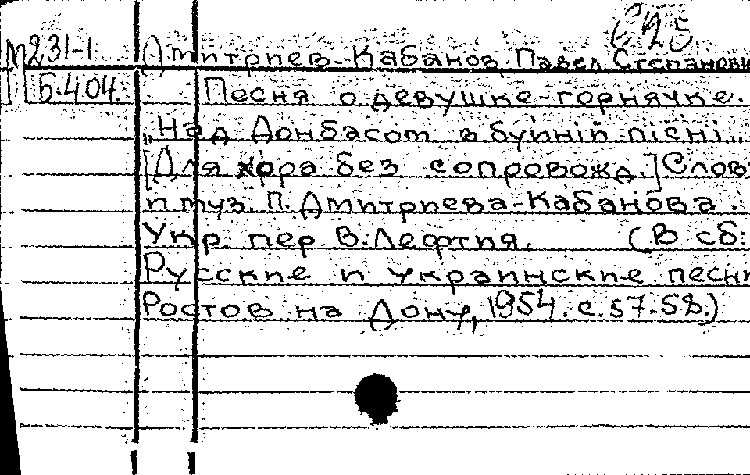 С25
М231-1 Дмитриев-Кабанов Павел Степанови
15.404. Песня о девушке-горнячке.
„Над Донбасом в буйній пісні..
[Для хора без сопровожд.] Слов
и муз. П. Дмитриева-Кабанова.
Укр. пер В. Лефтия. (В сб:
Русские и украинские песни
Ростов на Дону, 1954. с. 57-58.)